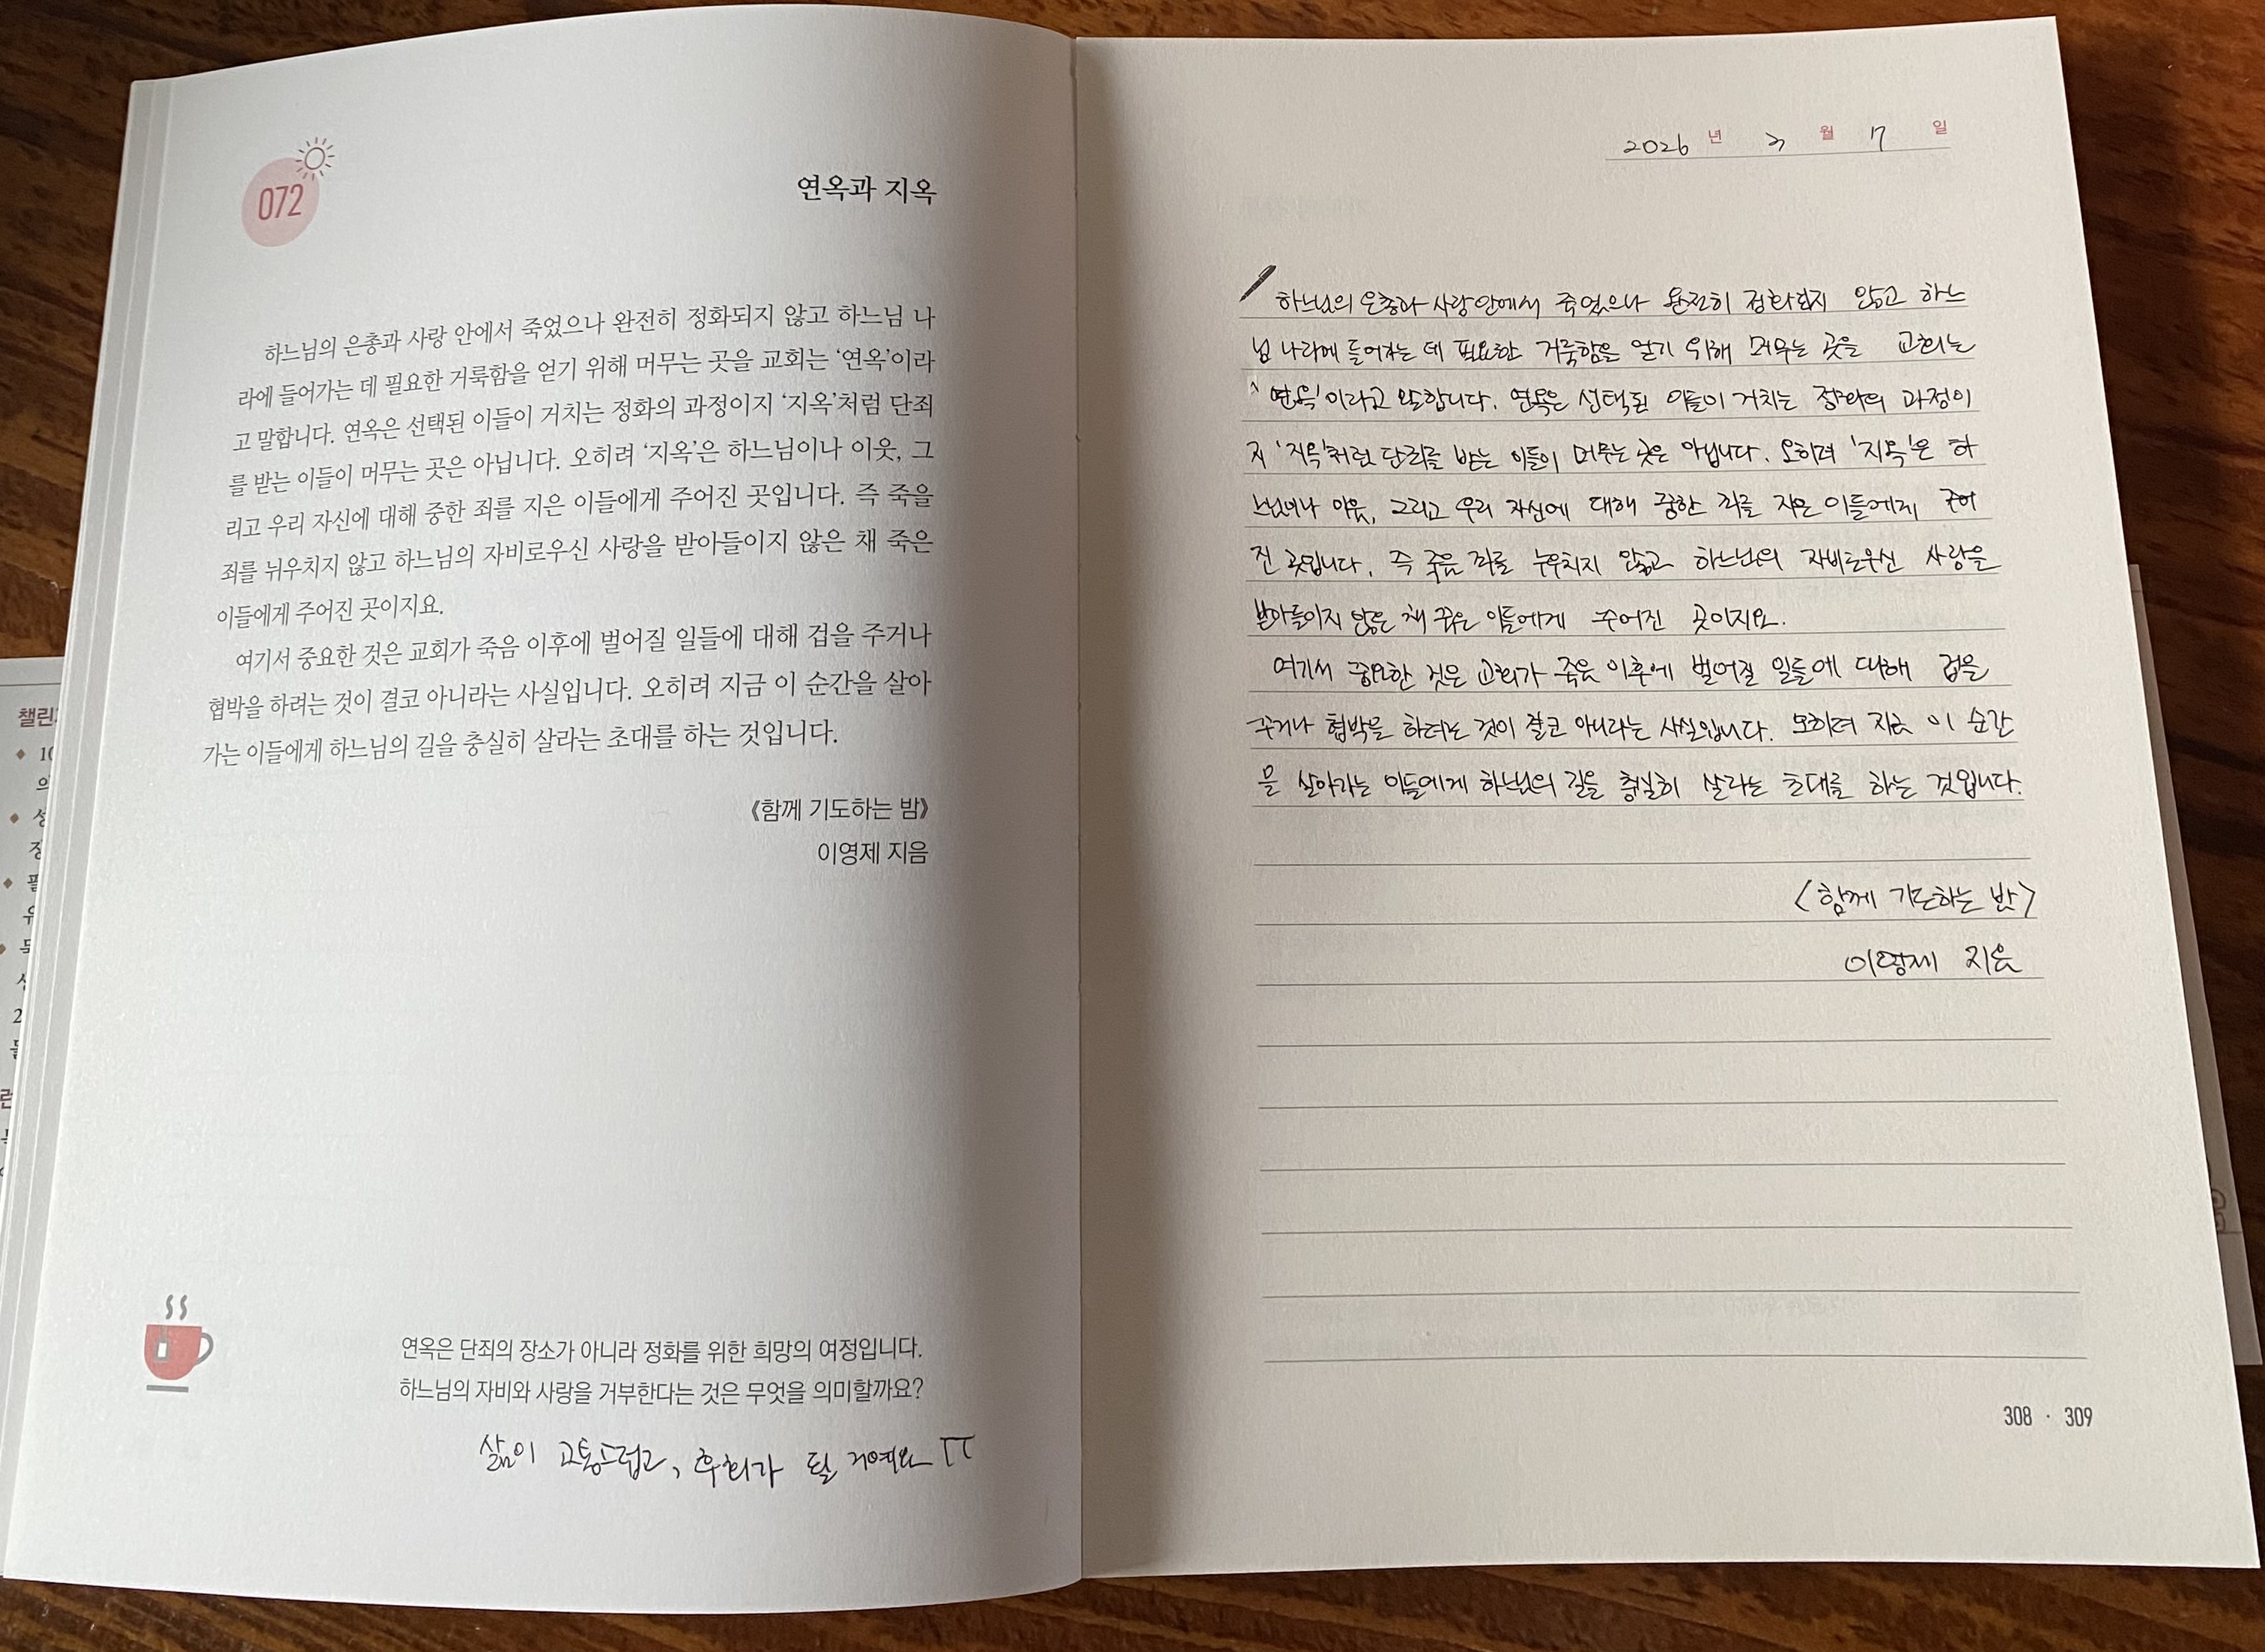 072
연옥과 지옥
하느님의 은총과 사랑 안에서 죽었으나 완전히 정화되지 않고 하느님 나
라에 들어가는 데 필요한 거룩함을 얻기 위해 머무는 곳을 교회는 ‘연옥’이라
고 말합니다. 연옥은 선택된 이들이 거치는 정화의 과정이지 ‘지옥’처럼 단죄
를 받는 이들이 머무는 곳은 아닙니다. 오히려 ‘지옥’은 하느님이나 이웃, 그
리고 우리 자신에 대해 중한 죄를 지은 이들에게 주어진 곳입니다. 즉 죽을
죄를 뉘우치지 않고 하느님의 자비로우신 사랑을 받아들이지 않은 채 죽은
이들에게 주어진 곳이지요.
여기서 중요한 것은 교회가 죽음 이후에 벌어질 일들에 대해 겁을 주거나
협박을 하려는 것이 결코 아니라는 사실입니다. 오히려 지금 이 순간을 살아
가는 이들에게 하느님의 길을 충실히 살라는 초대를 하는 것입니다.
《함께 기도하는 밤》
이영제 지음
연옥은 단죄의 장소가 아니라 정화를 위한 희망의 여정입니다.
하느님의 자비와 사랑을 거부한다는 것은 무엇을 의미할까요?
삶이 고통스럽고, 후회가 될 거예요 ㅠ
2026 년 3 월 7 일
하느님의 은총과 사랑 안에서 죽었으나 완전히 정화되지 않고 하느
님 나라에 들어가는 데 필요한 거룩함을 얻기 위해 머무는 곳을 교회는
'연옥'이라고 말합니다. 연옥은 선택된 이들이 거치는 정화의 과정이
지 '지옥'처럼 단죄를 받는 이들이 머무는 곳은 아닙니다. 오히려 '지옥'은 하
느님이나 이웃, 그리고 우리 자신에 대해 중한 죄를 지은 이들에게 주어
진 곳입니다. 즉 죽을 죄를 뉘우치지 않고 하느님의 자비로우신 사랑을
받아들이지 않은 채 죽은 이들에게 주어진 곳이지요.
여기서 중요한 것은 교회가 죽음 이후에 벌어질 일들에 대해 겁을
주거나 협박을 하려는 것이 결코 아니라는 사실입니다. 오히려 지금 이 순간
을 살아가는 이들에게 하느님의 길을 충실히 살라는 초대를 하는 것입니다.
〈함께 기도하는 밤〉
이영제 지음
308 · 309